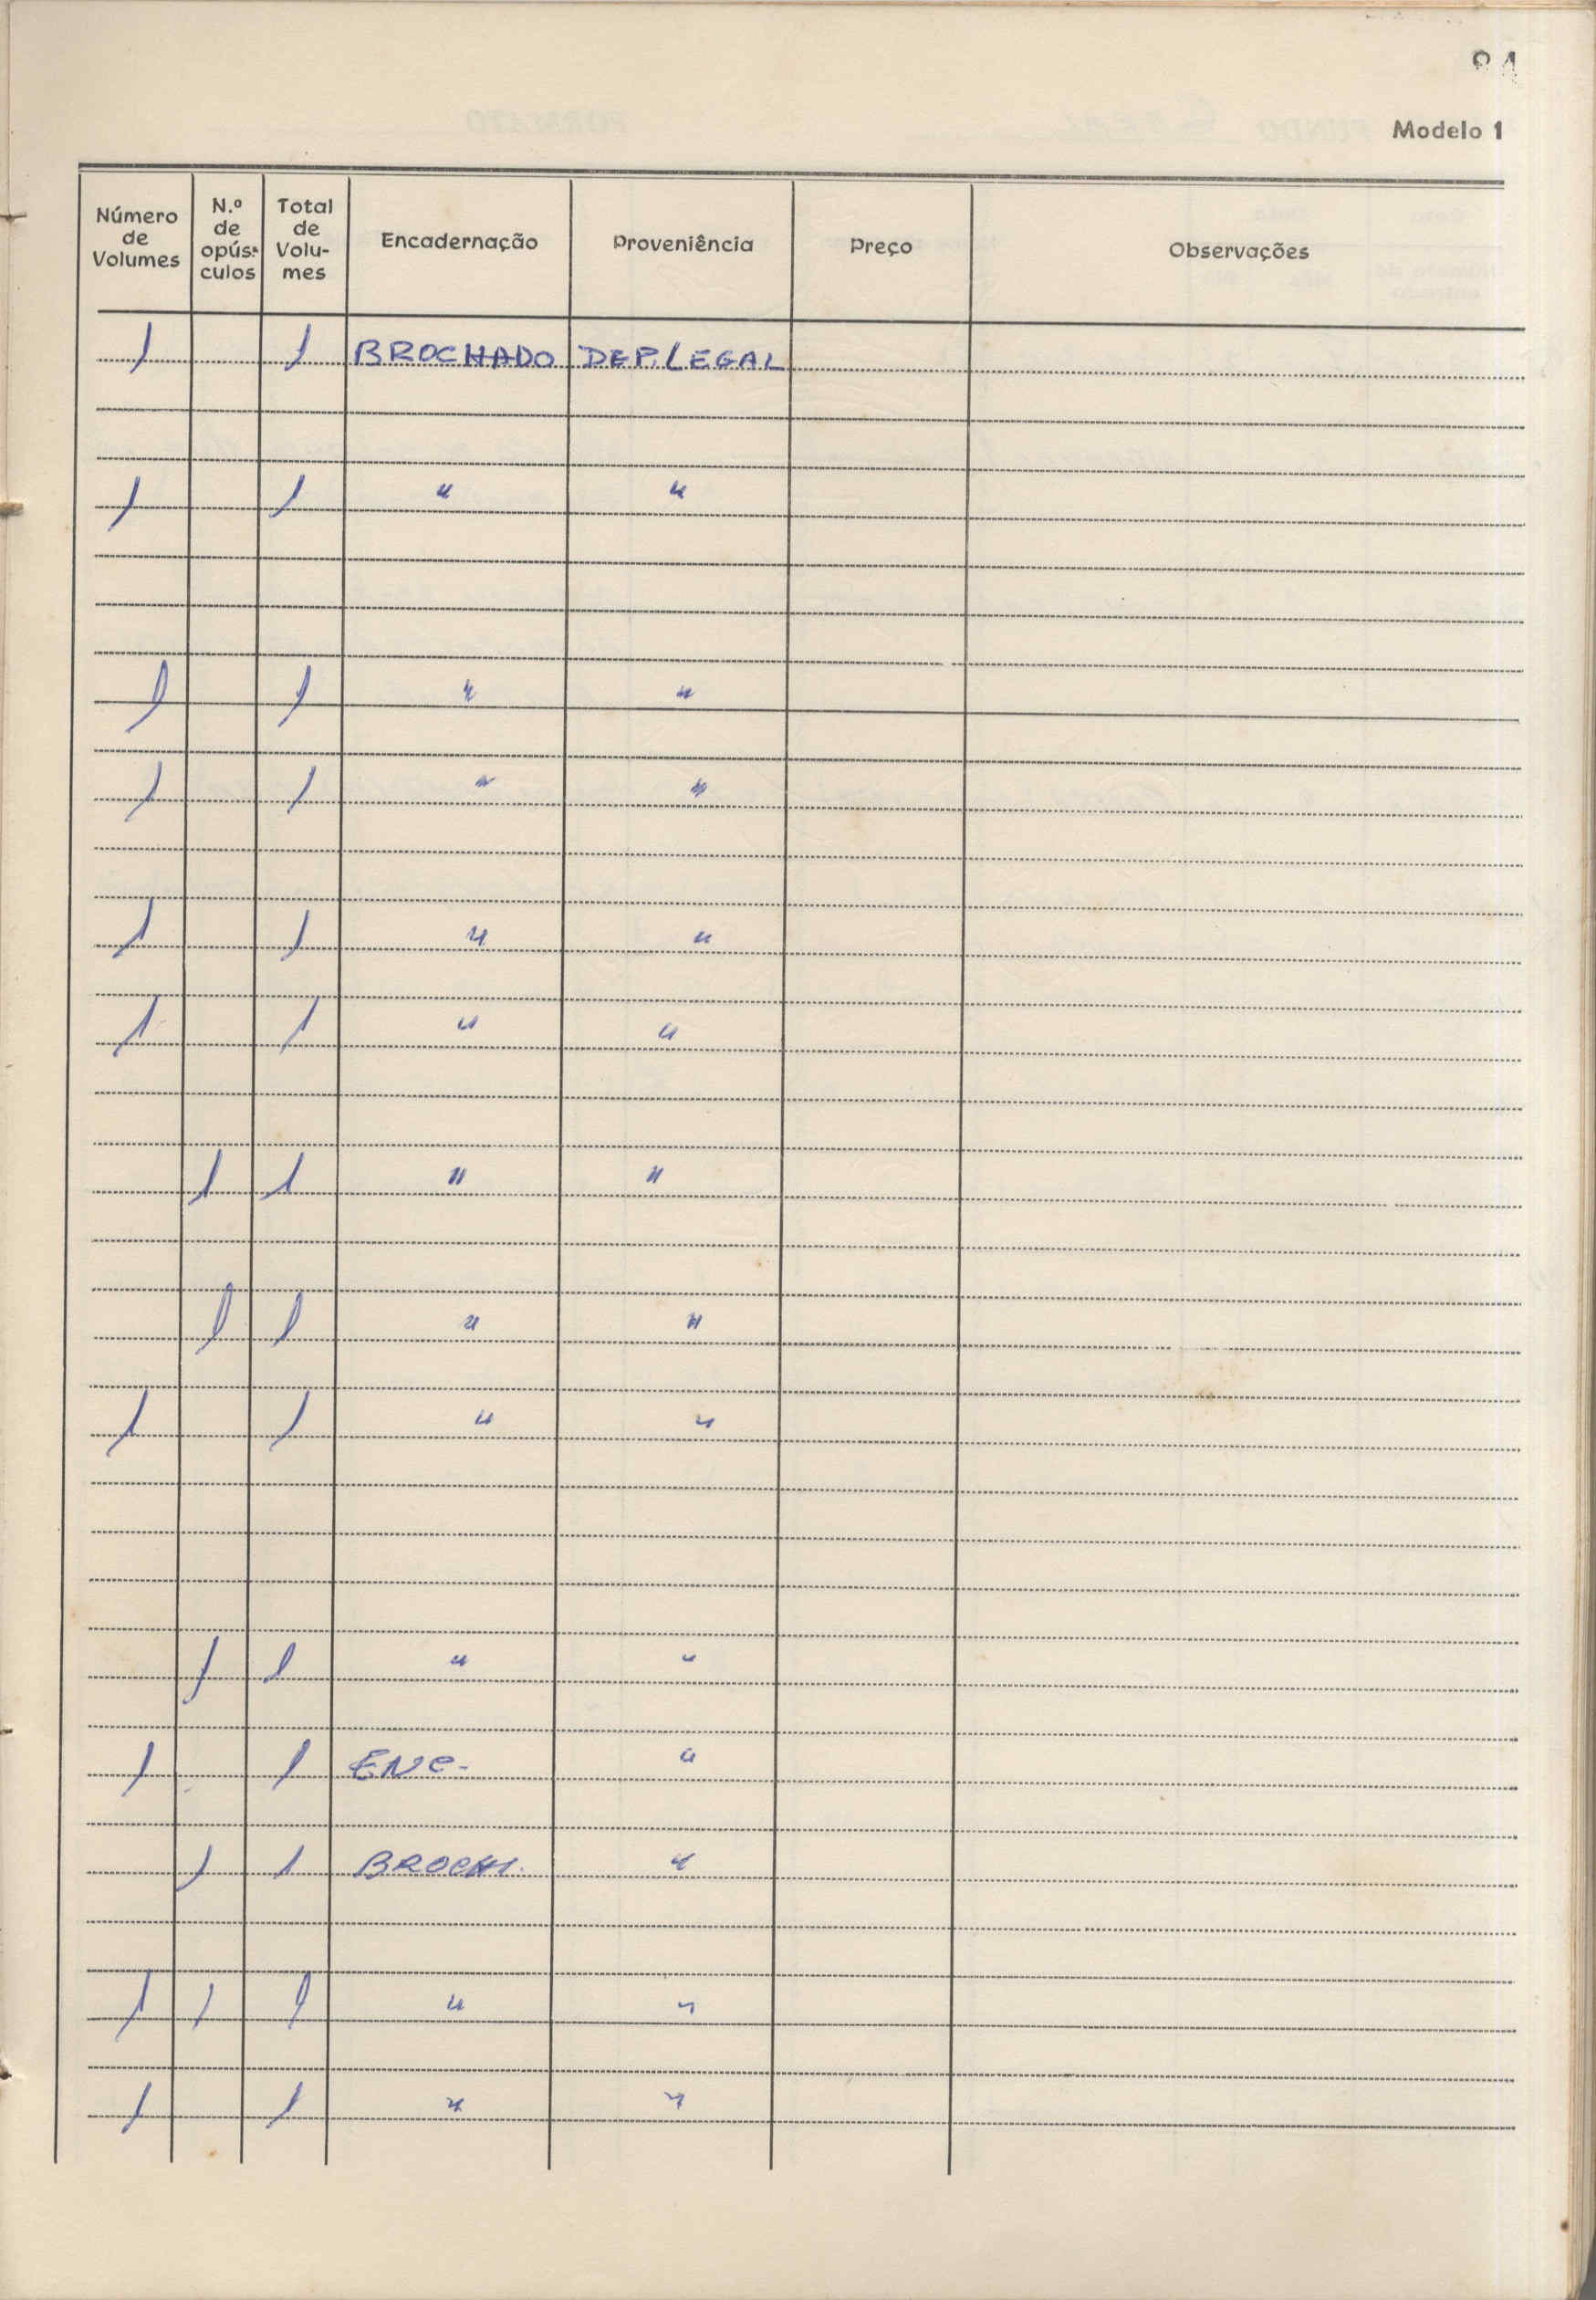 Modelo 1
Número de Volumes | N.º de opús-culos | Total de Volu-mes | Encadernação | Proveniência | Preço | Observações
1 | | 1 | BROCHADO | DEP. LEGAL
1 | | 1 | " | "
1 | | 1 | " | "
1 | | 1 | " | "
1 | | 1 | " | "
1 | | 1 | " | "
| 1 | 1 | " | "
| 1 | 1 | " | "
1 | | 1 | " | "
| 1 | 1 | " | "
1 | | 1 | ENC. | "
| 1 | 1 | BROCH. | "
1 | 1 | 1 | " | "
1 | | 1 | " | "